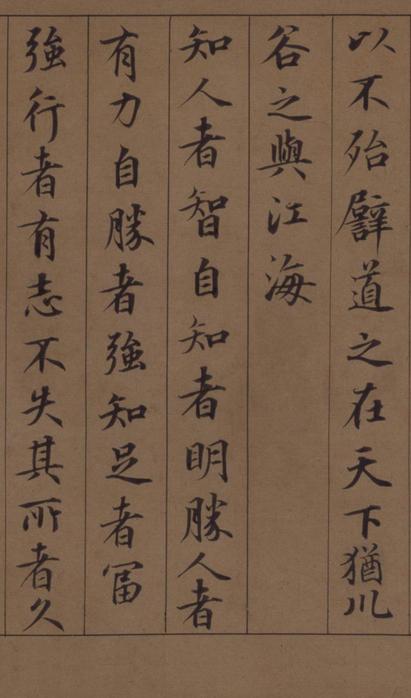 以不殆譬道之在天下猶川
谷之與江海
知人者智自知者明勝人者
有力自勝者強知足者富
強行者有志不失其所者久